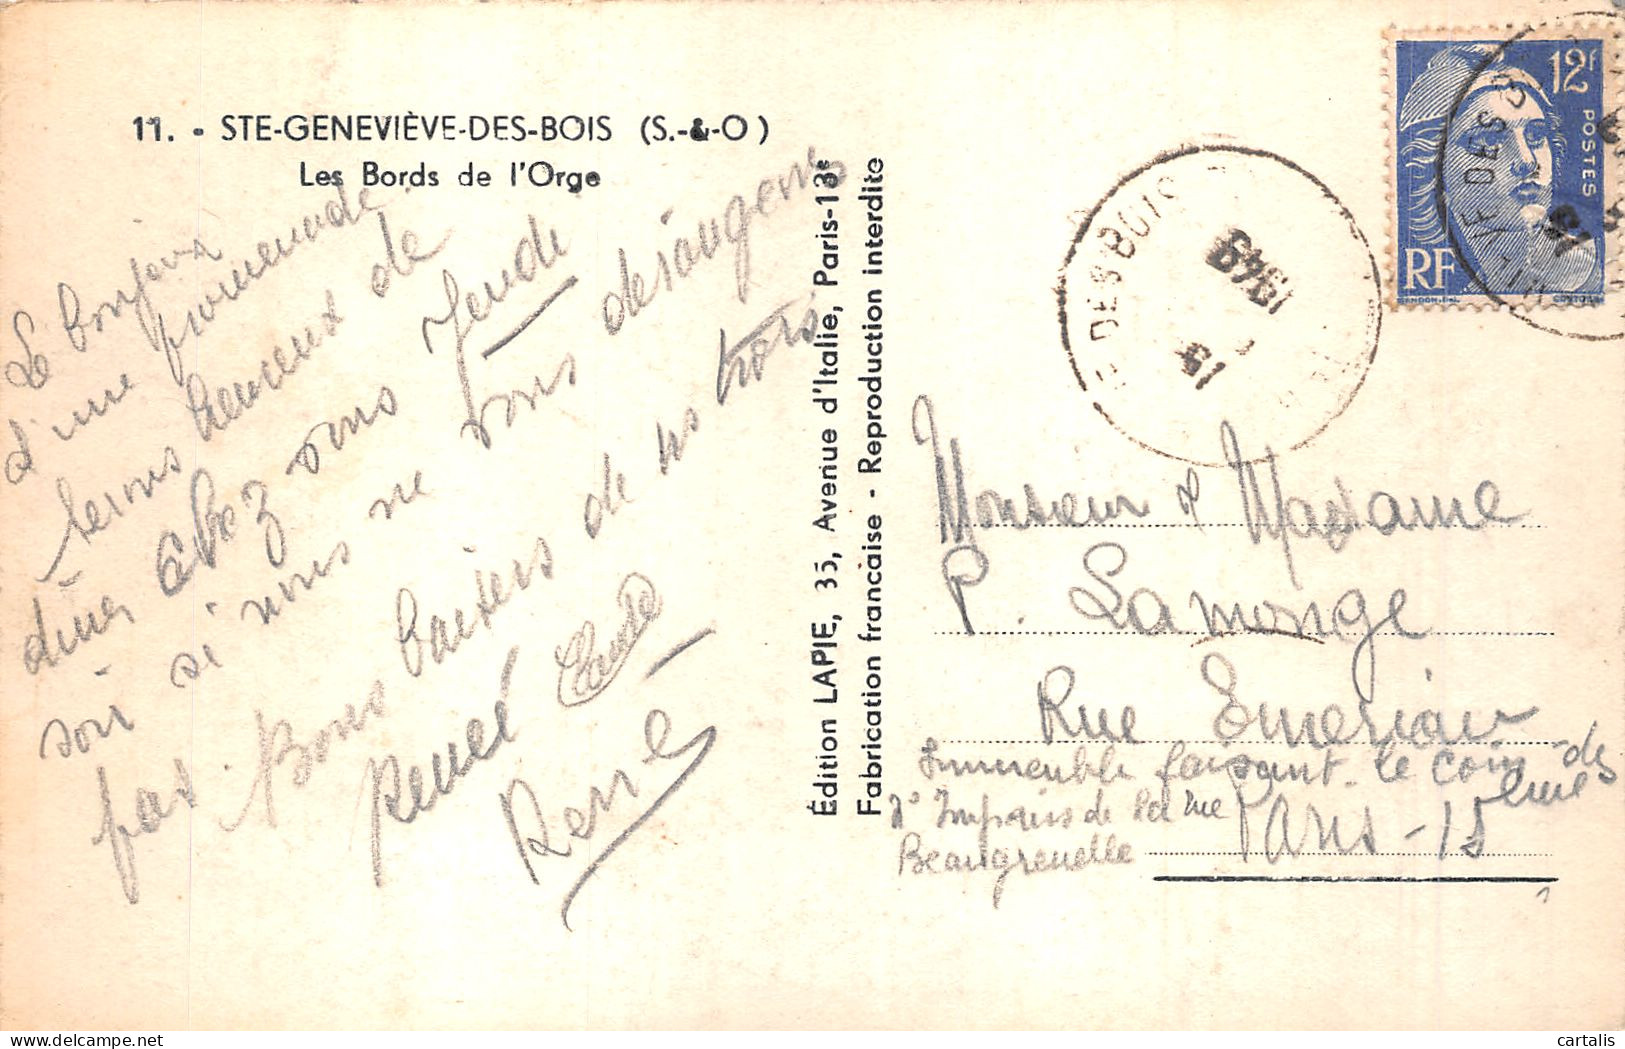 11. - STE-GENEVIÈVE-DES-BOIS (S.-&-O)
Les Bords de l'Orge
Le bonjour
d'une promenade.
Serons heureux de
diner chez vous Jeudi
soir si nous ne vous dérangeons
pas. Bons baisers de nos trois
René Claude
Renée
Édition LAPIE, 35, Avenue d'Italie, Paris-13e
Fabrication française - Reproduction interdite
DES BOIS
15
1949
12f
POSTES
RF
GANDON
DES BO
15
Monsieur & Madame
P. Lamonge
Rue Emeriau
Immeuble faisant le coin des
Impasse de la rue
Beaugrenelle
Paris-15ème
cartalis | delcampe.net